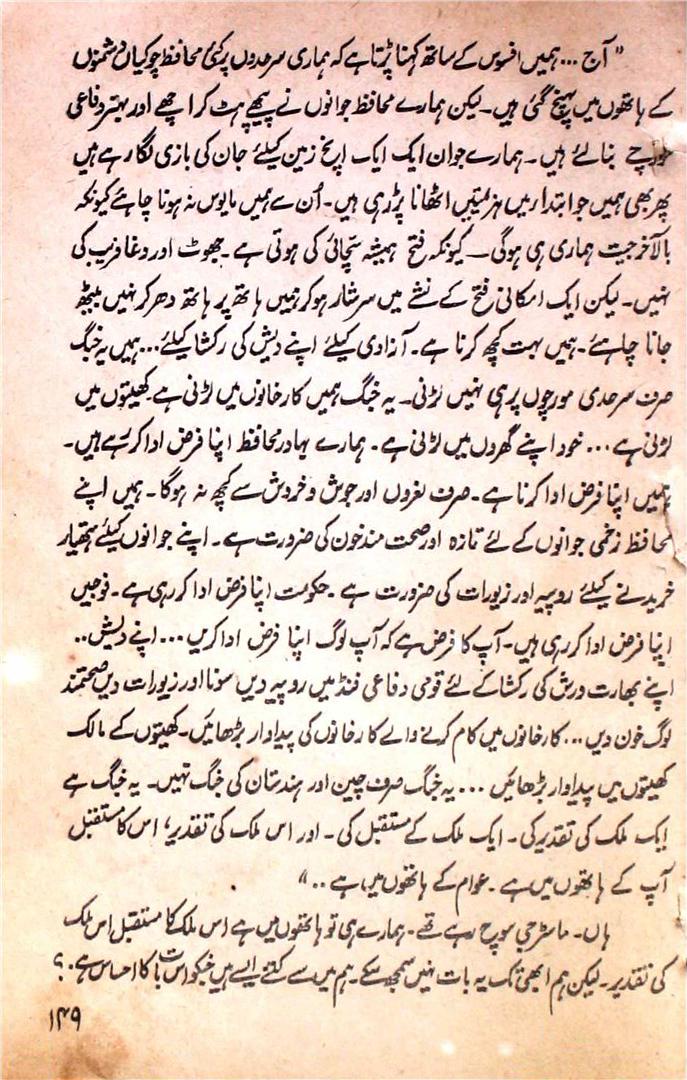 " آج ... ہمیں افسوس کے ساتھ کہنا پڑتا ہے کہ ہماری سرحدوں پر کئی محافظ چوکیاں دشمنوں
کے ہاتھوں میں پہنچ گئی ہیں۔ لیکن ہمارے محافظ جوانوں نے پیچھے ہٹ کر اچھے اور بہتر دفاعی
مورچے بنالئے ہیں۔ ہمارے جوان ایک ایک اِنچ زمین کیلئے جان کی بازی لگا رہے ہیں
پھر بھی ہمیں جو ابتدار میں ہزیمتیں اٹھانا پڑ رہی ہیں۔ اُن سے ہمیں مایوس نہ ہونا چاہئے کیونکہ
بالآخر جیت ہماری ہی ہوگی — کیونکہ فتح ہمیشہ سچائی کی ہوتی ہے ۔جھوٹ اور دغا فریب کی
نہیں۔ لیکن ایک امکانی فتح کے نشے میں سرشار ہوکر ہمیں ہاتھ پر ہاتھ دھر کر نہیں بیٹھ
جانا چاہئے۔ ہمیں بہت کچھ کرنا ہے۔ آزادی کیلئے اپنے دیش کی رکشا کیلئے... ہمیں یہ جنگ
صرف سرحدی مورچوں پر ہی نہیں لڑنی۔ یہ جنگ ہمیں کارخانوں میں لڑنی ہے کھیتوں میں
لڑنی ہے ... خود اپنے گھروں میں لڑنی ہے۔ ہمارے بہادر محافظ اپنا فرض ادا کر رہے ہیں۔
ہمیں اپنا فرض ادا کرنا ہے۔ صرف نعروں اور جوش و خروش سے کچھ نہ ہوگا۔ ہمیں اپنے
محافظ زخمی جوانوں کے لئے تازہ اور صحت مند خون کی ضرورت ہے۔ اپنے جوانوں کیلئے ہتھیار
خریدنے کیلئے روپیہ اور زیورات کی ضرورت ہے ۔حکومت اپنا فرض ادا کر رہی ہے۔ فوجیں
اپنا فرض ادا کر رہی ہیں۔ آپ کا فرض ہے کہ آپ لوگ اپنا فرض ادا کریں ... اپنے دیش..
اپنے بھارت ورش کی رکشا کے لئے قومی دفاعی فنڈ میں روپیہ دیں سونا اور زیورات دیں صحتمند
لوگ خون دیں ... کارخانوں میں کام کرنے والے کارخانوں کی پیداوار بڑھائیں۔ کھیتوں کے مالک
کھیتوں میں پیداوار بڑھائیں ... یہ جنگ صرف چین اور ہندستان کی جنگ نہیں۔ یہ جنگ ہے
ایک ملک کی تقدیر کی۔ ایک ملک کے مستقبل کی۔ اور اس ملک کی تقدیر، اس کا مستقبل
آپ کے ہاتھوں میں ہے ۔عوام کے ہاتھوں میں ہے .. "
ہاں۔ ماسٹر جی سوچ رہے تھے۔ ہمارے ہی تو ہاتھوں میں ہے اس ملک کا مستقبل اس ملک
کی تقدیر۔ لیکن ہم ابھی تک یہ بات نہیں سمجھ سکے۔ ہم میں سے کتنے ایسے ہیں جنکو اس بات کا احساس ہے۔ ؟
۱۴۹